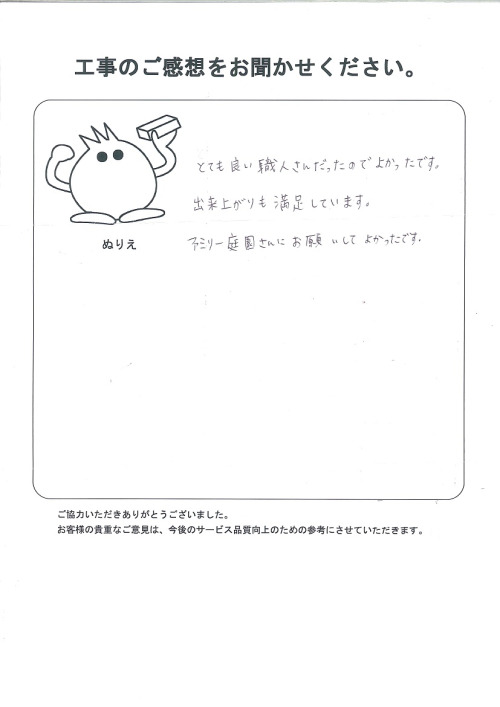 工事のご感想をお聞かせください。
とても良い職人さんだったのでよかったです。
出来上がりも満足しています。
ぬりえ
ファミリー庭園さんにお願いしてよかったです。
ご協力いただきありがとうございました。
お客様の貴重なご意見は、今後のサービス品質向上のための参考にさせていただきます。